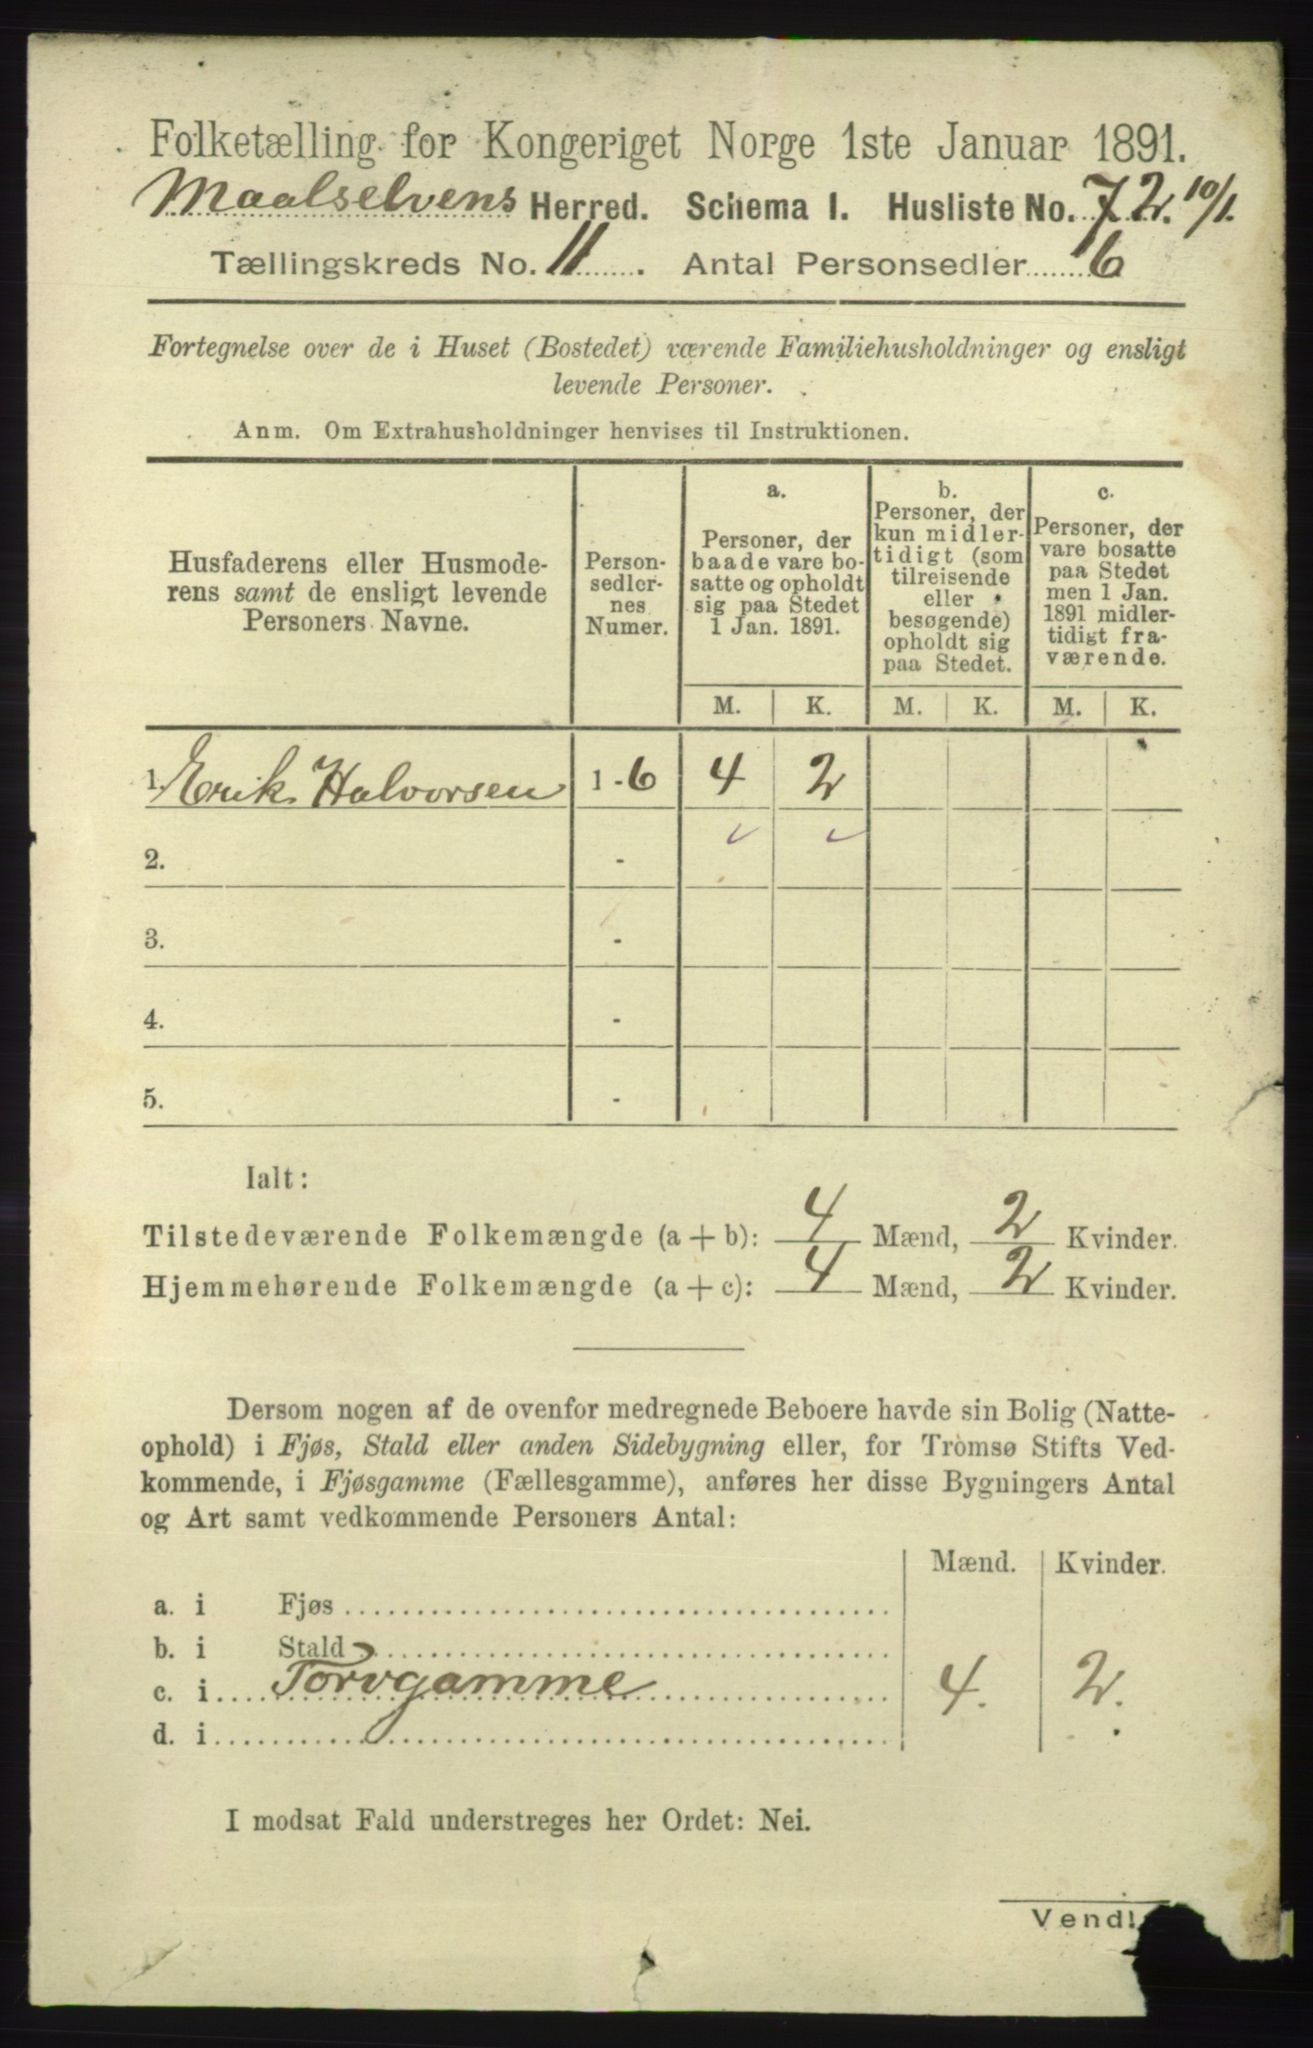 Folketælling for Kongeriget Norge 1ste Januar 1891.
Maalselvens Herred. Schema I. Husliste No. 72. 10/1.
Tællingskreds No. 11. Antal Personsedler 6
Fortegnelse over de i Huset (Bostedet) værende Familiehusholdninger og ensligt
levende Personer.
Anm. Om Extrahusholdninger henvises til Instruktionen.
Husfaderens eller Husmode-
rens samt de ensligt levende
Personers Navne.
Person-
sedler-
nes
Numer.
a.
Personer, der
baade vare bo-
satte og opholdt
sig paa Stedet
1 Jan. 1891.
b.
Personer, der
kun midler-
tidigt (som
tilreisende
eller
besøgende)
opholdt sig
paa Stedet.
c.
Personer, der
vare bosatte
paa Stedet
men 1 Jan.
1891 midler-
tidigt fra-
værende.
M. K. M. K. M. K.
1. Erik Halvorsen 1-6 4 2
2. -
3. -
4. -
5. -
Ialt:
Tilstedeværende Folkemængde (a + b): 4 Mænd, 2 Kvinder.
Hjemmehørende Folkemængde (a + c): 4 Mænd, 2 Kvinder.
Dersom nogen af de ovenfor medregnede Beboere havde sin Bolig (Natte-
ophold) i Fjøs, Stald eller anden Sidebygning eller, for Tromsø Stifts Ved-
kommende, i Fjøsgamme (Fællesgamme), anføres her disse Bygningers Antal
og Art samt vedkommende Personers Antal:
Mænd. Kvinder.
a. i Fjøs
b. i Stald
c. i Torvgamme 4. 2.
d. i
I modsat Fald understreges her Ordet: Nei.
Vend!